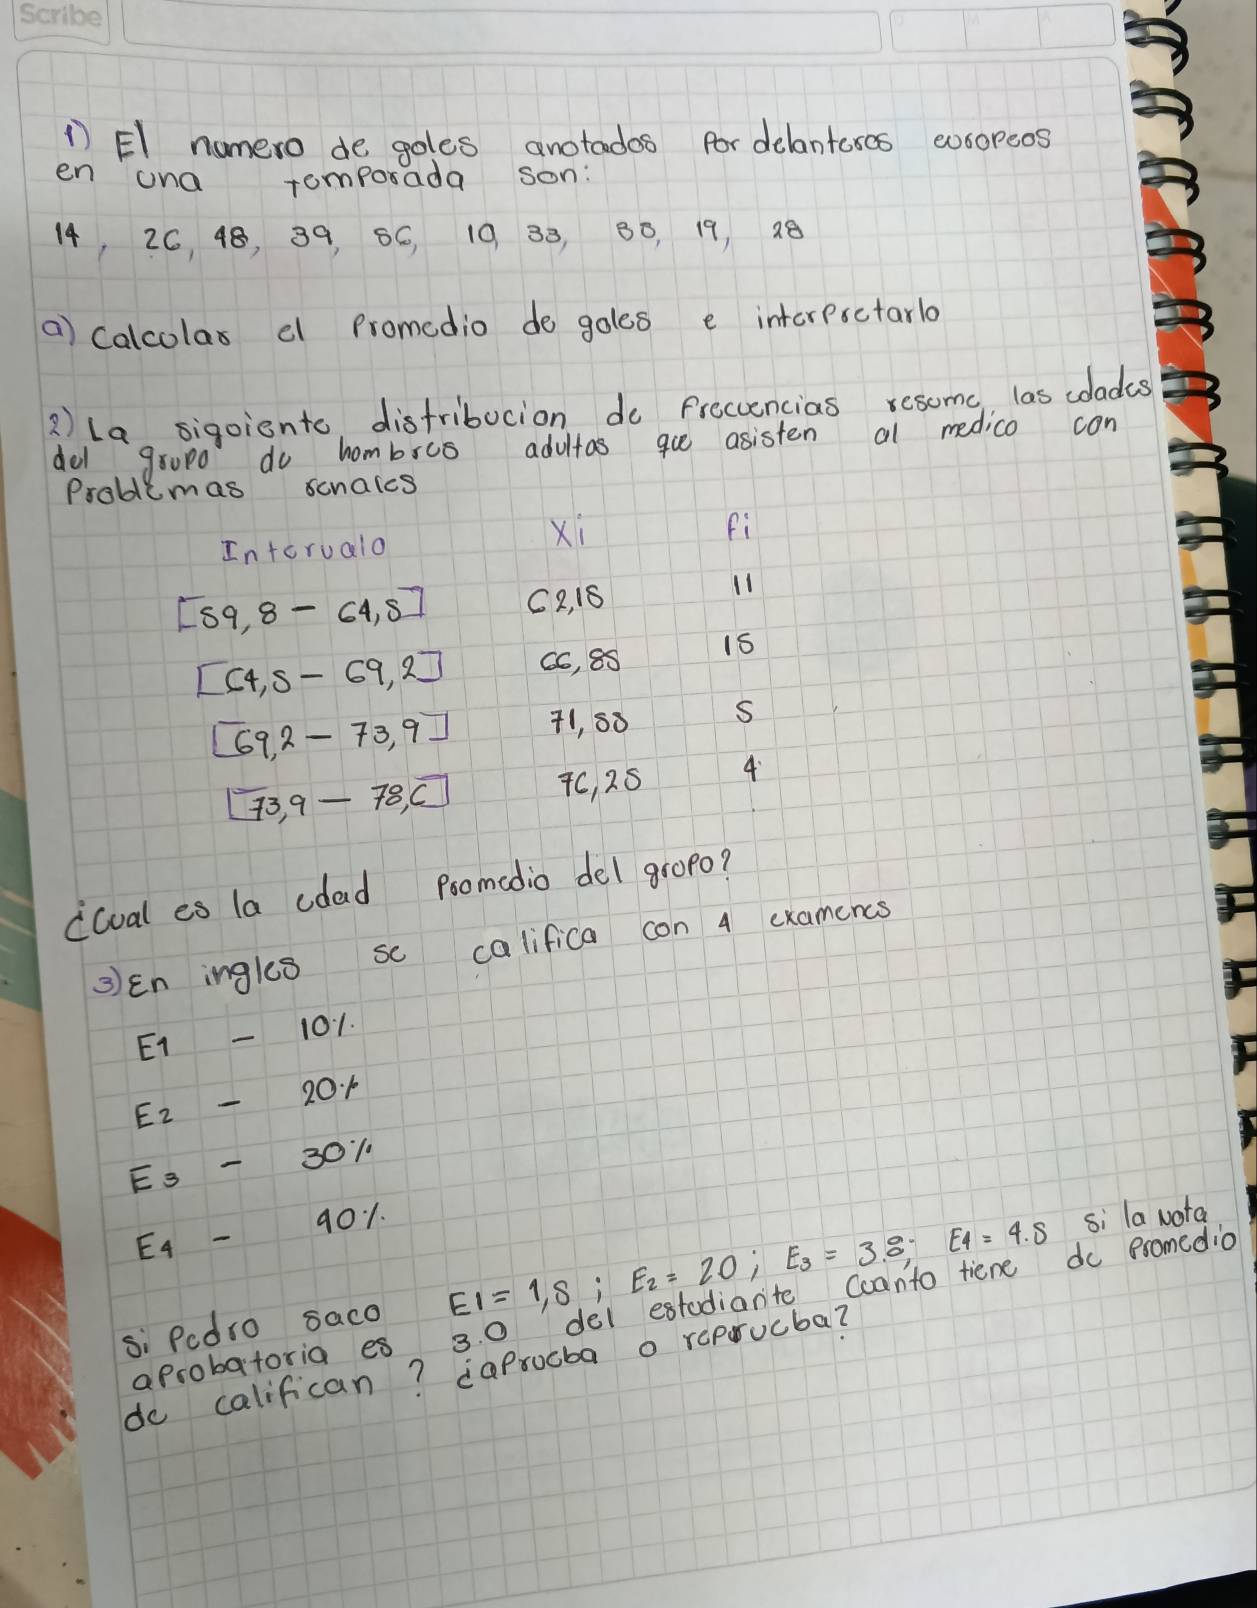 Scribe
1) El numero de goles anotados por delanteros europeos
en una temporada son:
14, 26, 48, 39, 56, 10, 33, 35, 19, 28
a) Calcular el promedio de goles e interpretarlo
2) La siguiente distribucion de frecuencias resume las edades
del grupo de hombres adultos que asisten al medico con
Problemas renales
Intervalo Xi fi
[59,8 - 64,5] 62,15 11
[64,5 - 69,2] 66,85 15
[69,2 - 73,9] 71,55 5
[73,9 - 78,6] 76,25 4
¿Cual es la edad promedio del grupo?
3) En ingles se califica con 4 examenes
E1 - 10%
E2 - 20%
E3 - 30%
E4 - 40%
Si Pedro saco E1 = 1,5; E2 = 20; E3 = 3.8; E4 = 4.5 si la nota
aprobatoria es 3.0 del estudiante cuanto tiene de promedio
de califican? ¿aprueba o reprueba?